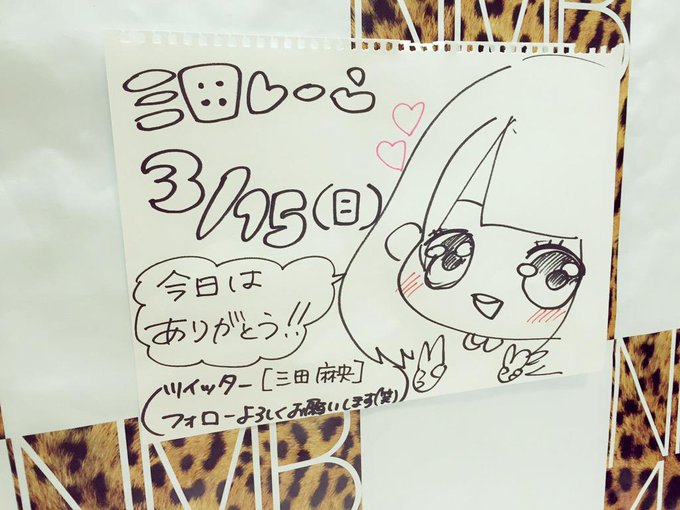 NMB
三田レーン
3/15(日)
今日は
ありがとう!!
ツイッター[三田麻央]
フォローよろしくお願いします(笑)
NMB
NM